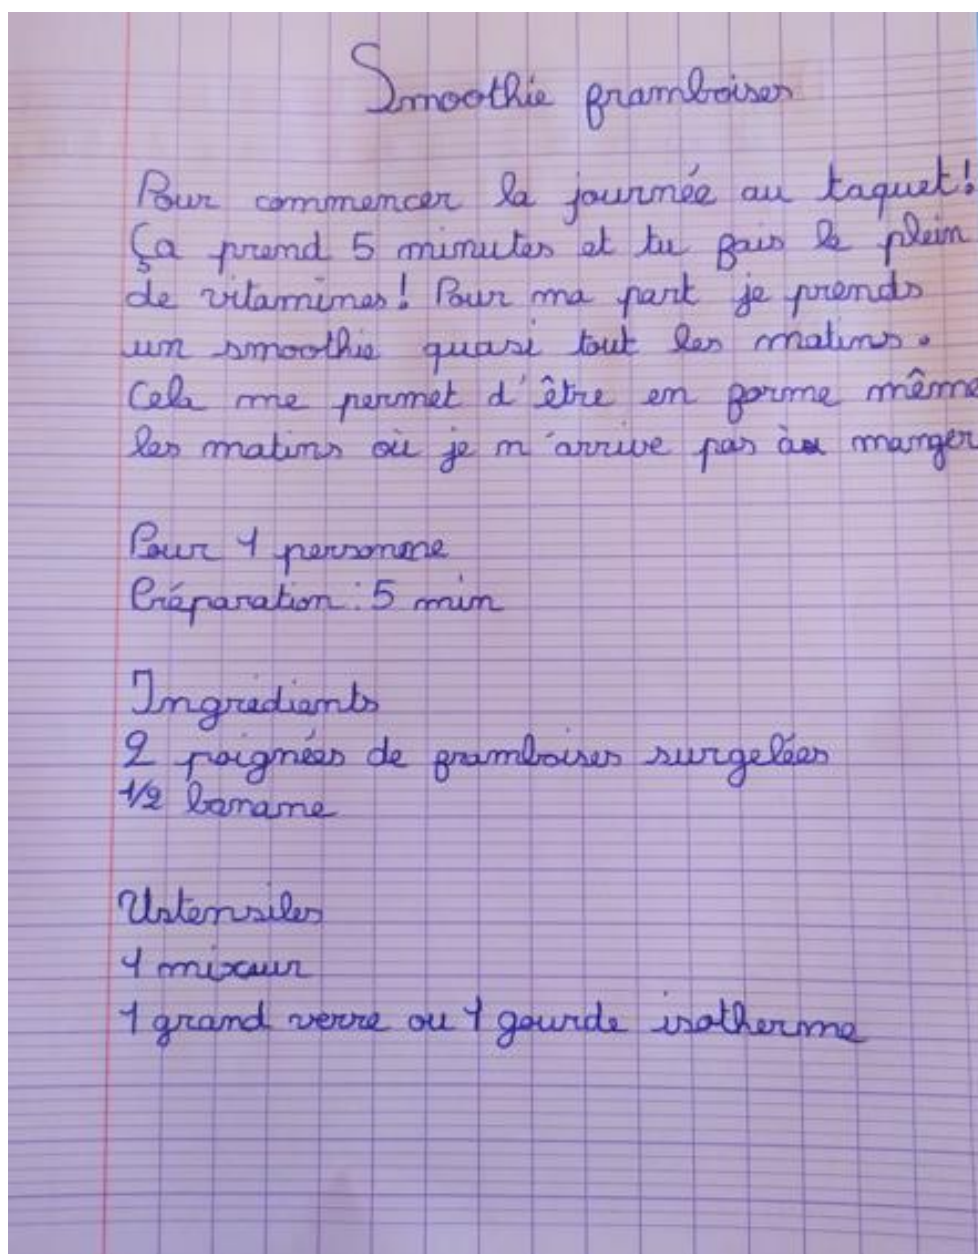 Smoothie framboises
Pour commencer la journée au taquet!
Ça prend 5 minutes et tu fais le plein
de vitamines! Pour ma part je prends
un smoothie quasi tout les matins.
Cela me permet d'être en forme même
les matins où je n'arrive pas à manger
Pour 1 personne
Préparation: 5 min
Ingrédients
2 poignées de framboises surgelées
1/2 banane
Ustensiles
1 mixeur
1 grand verre ou 1 gourde isotherme